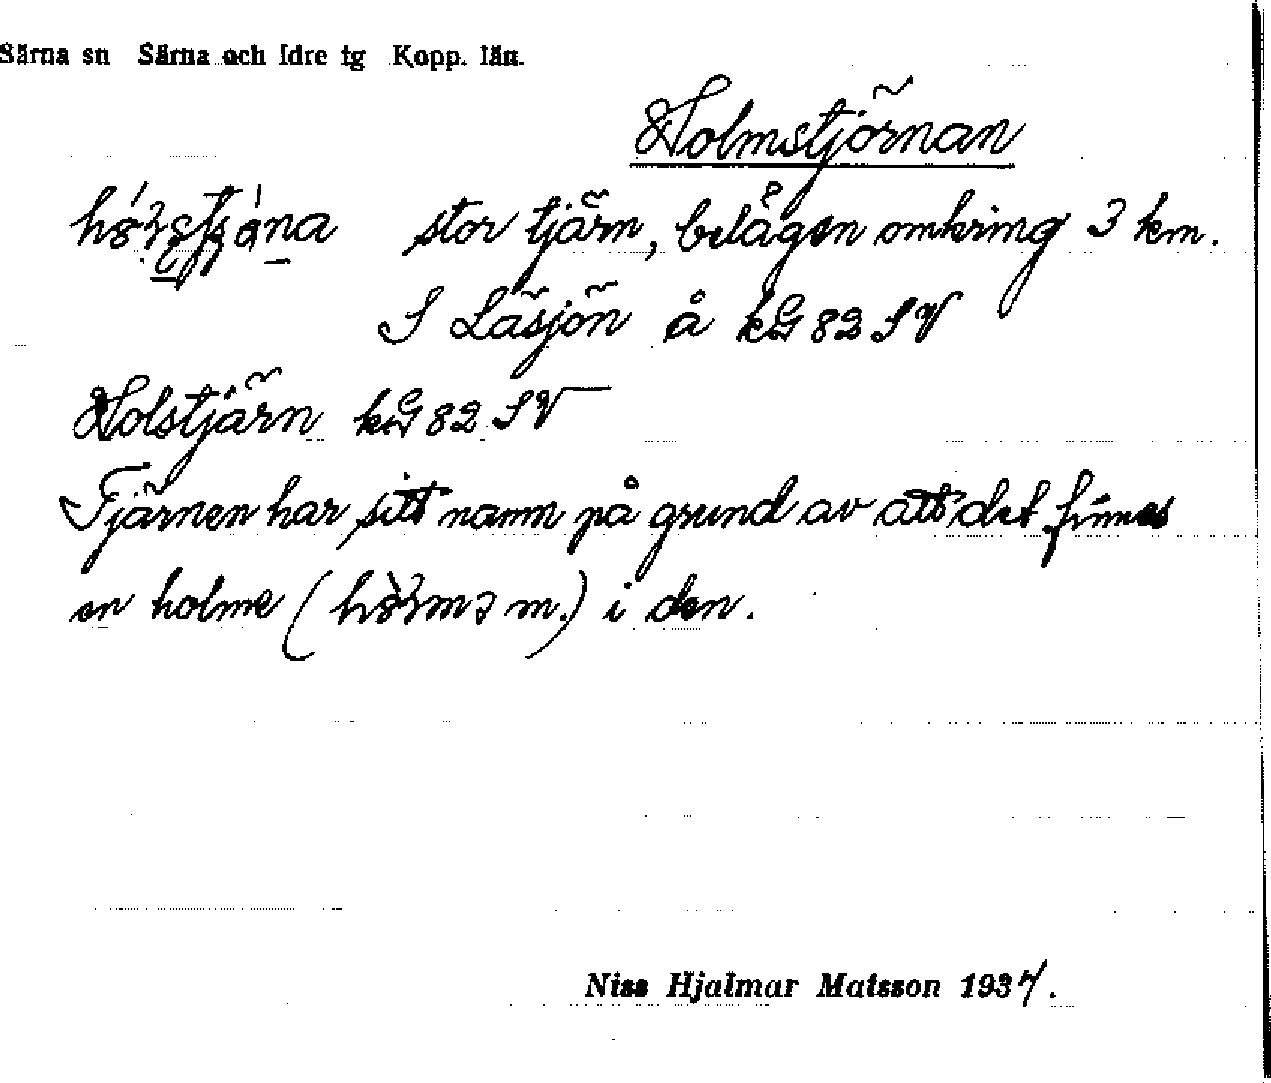 Särna sn Särna och Idre tg Kopp. län.
Holmstjörnan
stor tjärn, belägen omkring 3 km.
S Läsjön å kG 82 SV
Holstjärn kG 82 SV
Tjärnen har sitt namn på grund av att det finnes
en holme ( m.) i den.
Niss Hjalmar Matsson 1937.